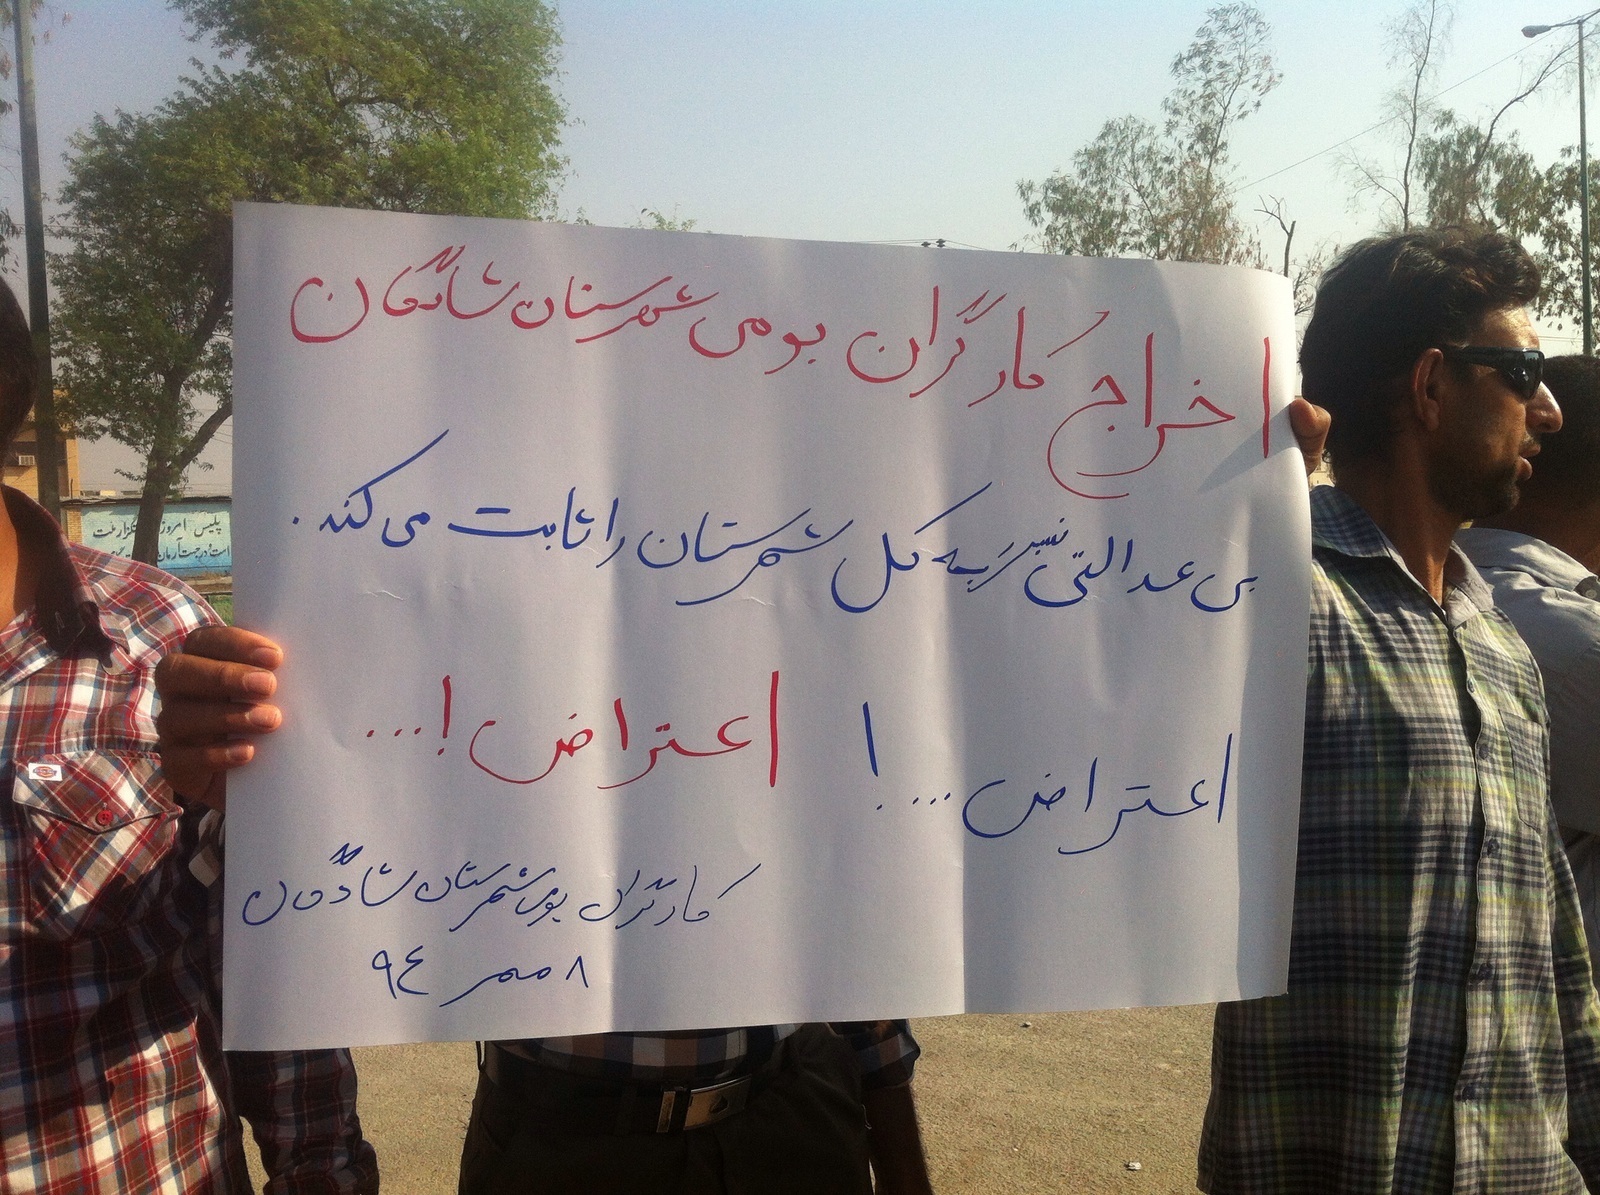 اخراج کارگران بومی شهرستان شادگان
بی عدالتی نسبت به کل شهرستان را ثابت می کند.
اعتراض....! اعتراض!...
کارگران بومی شهرستان شادگان
۸ مهر ۹٤
پلیس امروز
است در جستار